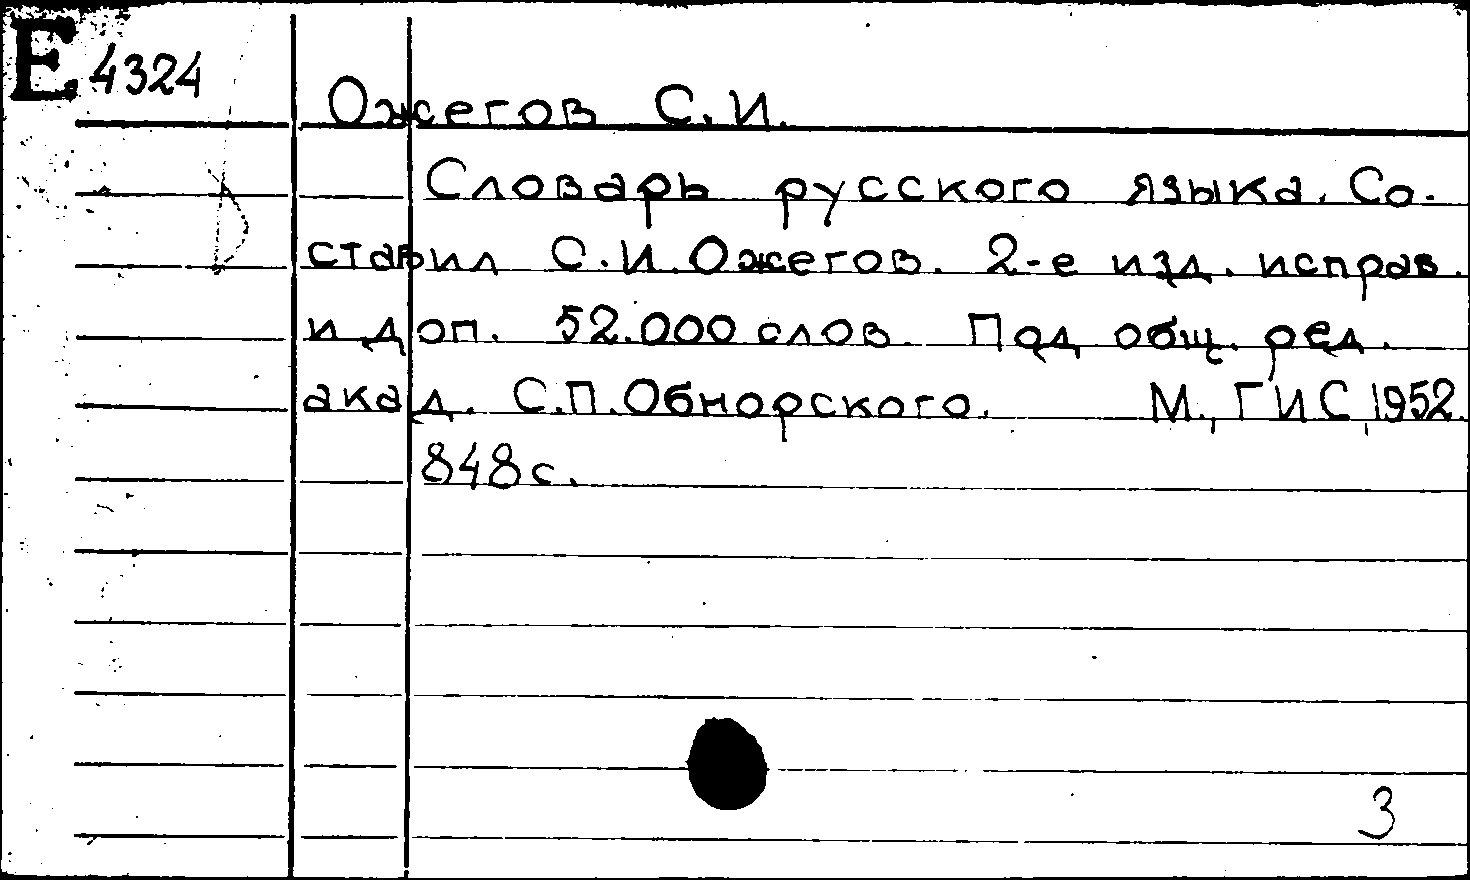 E 4324
Ожегов С.И.
Словарь русского языка. Со-
ставил С.И.Ожегов. 2-е изд. исправ.
и доп. 52.000 слов. Под общ. ред.
акад. С.П.Обнорского. М., ГИС, 1952.
848 с.
3